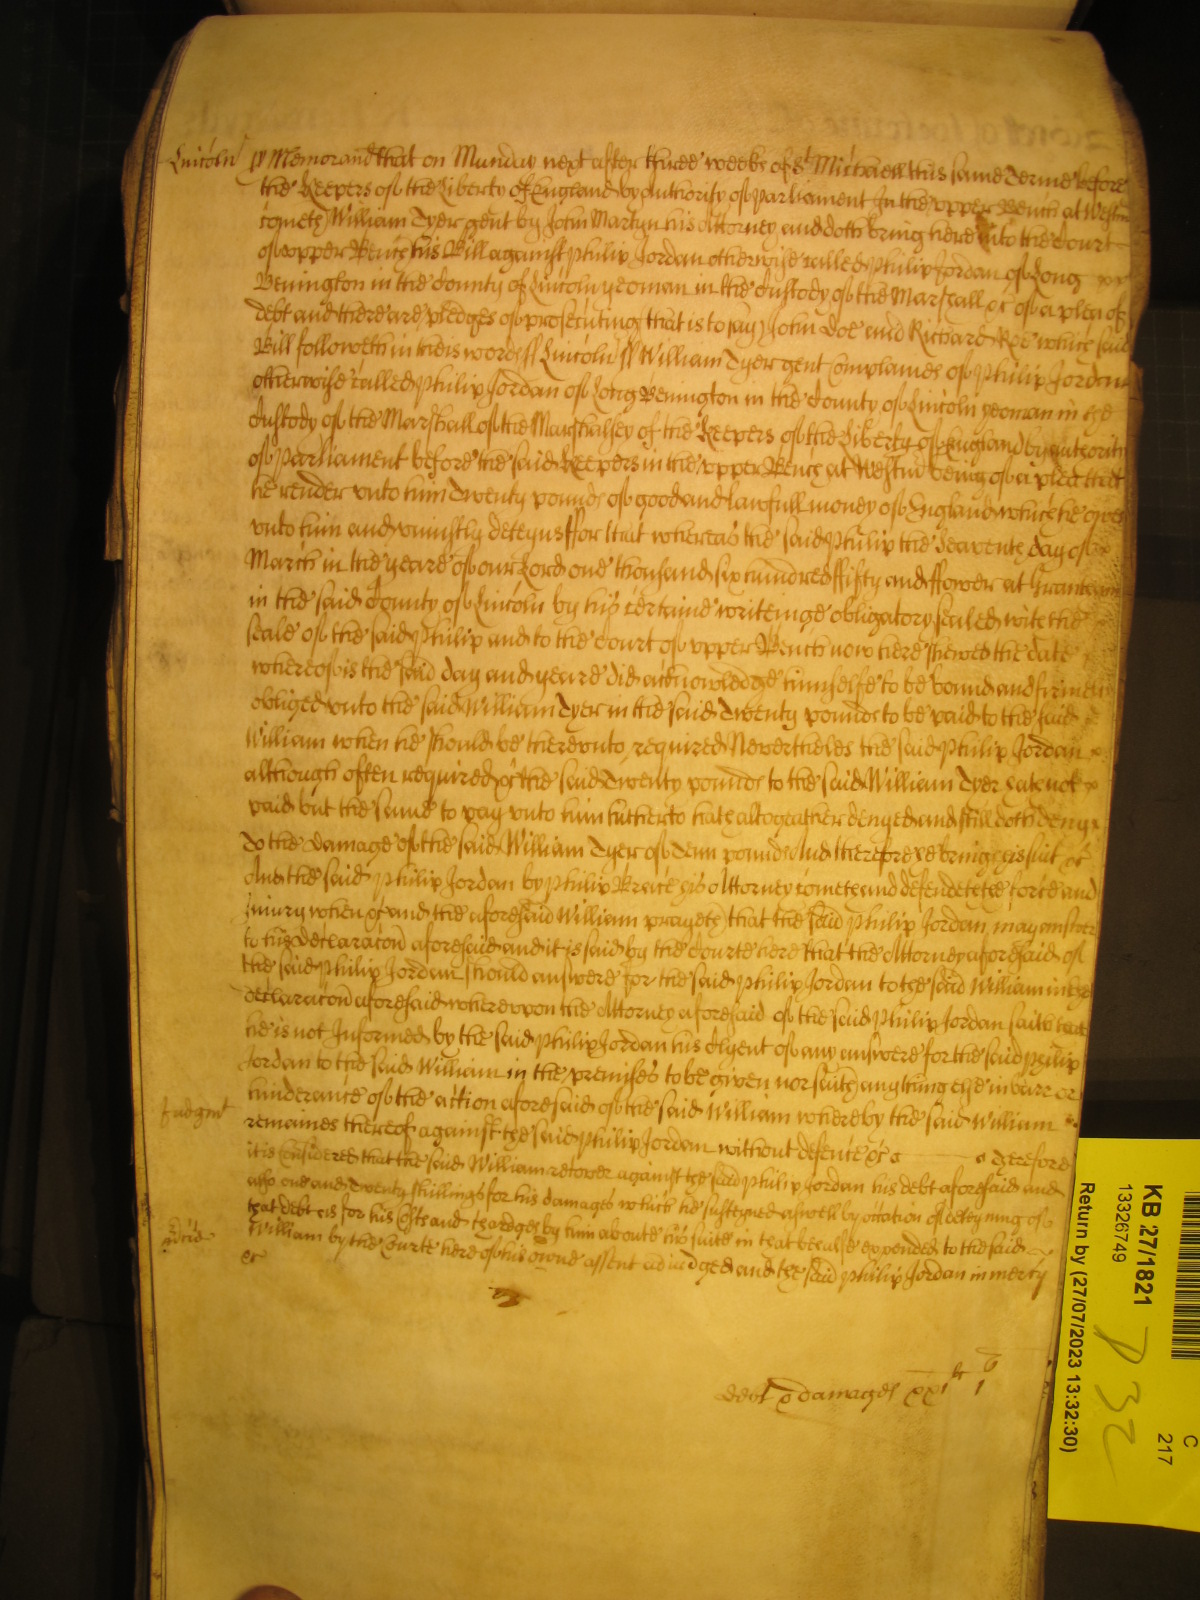 Lincoln ss Memorand that on Munday next after three weeks of St Michaell this same Terme before
the Keepers of the Liberty of England by authority of Parliament In the upper Bench at Westm
cometh William Dyer gent by John Martyn his Attorney and doth bring here into the Court
of upper Bench his Bill against Philip Jordan otherwise called Philip Jordan of Long
Benington in the County of Lincoln yeoman in the Custody of the Marshall &c of a plea of
debt and there are pledges of prosecuting that is to say John Doe and Richard Roe which said
Bill followeth in theis words ss Lincoln ss William Dyer gent complaines of Philip Jordan
otherwise called Philip Jordan of Long Benington in the County of Lincoln yeoman in the
Custody of the Marshall of the Marshalsey of the Keepers of the Liberty of England by authority
of Parliament before the said Keepers in the upper Bench at Westm being of a plea that
he render unto him Twenty pounds of good and lawfull money of England which he owes
unto him and uniustly deteyns ffor that whereas the said Philip the Seaventh day of
March in the yeare of our Lord one thousand six hundred ffifty and ffower at Grantham
in the said County of Lincoln by his certaine writeinge obligatory sealed with the
seale of the said Philip and to the Court of upper Bench now here shewed the date
whereof is the said day and yeare did acknowledge himselfe to be bound and firmely
obliged unto the said William Dyer in the said Twenty pounds to be paid to the said
William when he should be thereunto required Neverthelesse the said Philip Jordan
although often required &c the said Twenty pounds to the said William Dyer hath not
paid but the same to pay unto him hitherto hath altogeather denyed and still doth deny
To the damage of the said William Dyer of Tenn pounds And therefore he brings his suit &c
And the said Philip Jordan by Philip his Attorney cometh and defendeth the force and
Iniury when &c and the aforesaid William prayeth that the said Philip Jordan may answer
to his declaracon aforesaid and it is said by the Courte here that the Attorney aforesaid of
the said Philip Jordan should answere for the said Philip Jordan to the said William in his
declaracon aforesaid whereupon the Attorney aforesaid of the said Philip Jordan saith that
he is not Informed by the said Philip Jordan his Clyent of any answere for the said Philip
Jordan to the said William in the premises to be given nor saith any thing else in barr or
hinderance of the action aforesaid of the said William whereby the said William
Judgmt remaines thereof against the said Philip Jordan without defence &c Therefore
it is considered that the said William recover against the said Philip Jordan his debt aforesaid and
also one and Twenty shillings for his damages which he susteyned aswell by occation of deteyning of
that debt as for his Costs and chardges by him aboute his suite in that behalfe expended to the said
William by the Courte here of his owne assent adiudged and the said Philip Jordan in mercy
&c
debt & damages xxi li i s
KB 27/1821
13326749
C
217
Return by (27/07/2023 13:32:30)
P 32